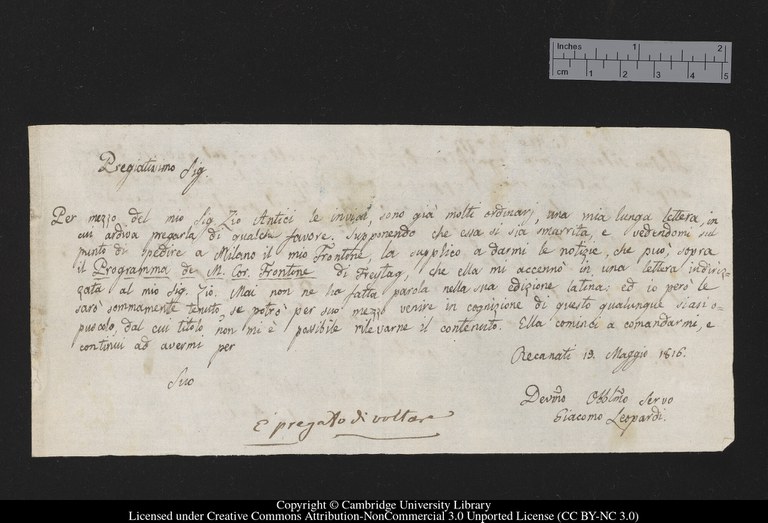 Inches 1 2
cm 1 2 3 4 5
Pregiatissimo Sig.
Per mezzo del mio Sig. Zio Antici le inviai, sono già molti ordinarj, una mia lunga lettera, in
cui ardiva pregarla di qualche favore. Supponendo che essa si sia smarrita, e vedendomi sul
punto di spedire a Milano il mio Frontone, la supplico a darmi le notizie, che può, sopra
il Programma de M. Cor. Frontone di Freytag, che ella mi accennò in una lettera indiriz-
zata al mio Sig. Zio. Mai non ne ha fatta parola nella sua edizione latina: ed io però le
sarò sommamente tenuto se potrò per suo mezzo venire in cognizione di questo qualunque siasi o-
puscolo, dal cui titolo non mi è possibile rilevarne il contenuto. Ella cominci a comandarmi, e
continui ad avermi per
Recanati 19. Maggio 1816.
Suo
Devmo Obblmo Servo
Giacomo Leopardi.
È pregato di voltare
Copyright © Cambridge University Library
Licensed under Creative Commons Attribution-NonCommercial 3.0 Unported License (CC BY-NC 3.0)